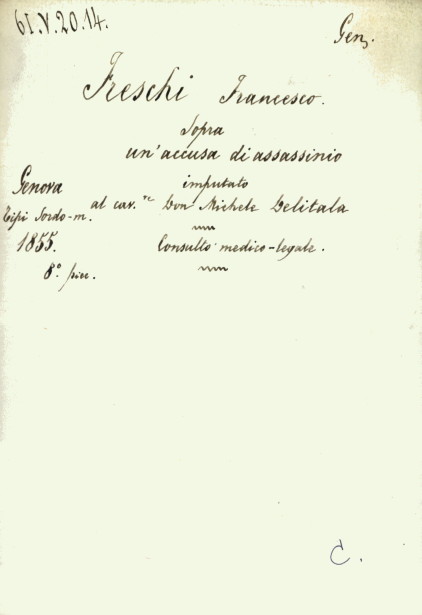 61.V.20.14.
Gen.
Freschi Francesco.
Sopra
un'accusa di assassinio
imputato
al cav.re Don Michele Delitala
Consulto medico-legale.
Genova
Tipi Sordo-m.
1855.
8.° picc.
C.